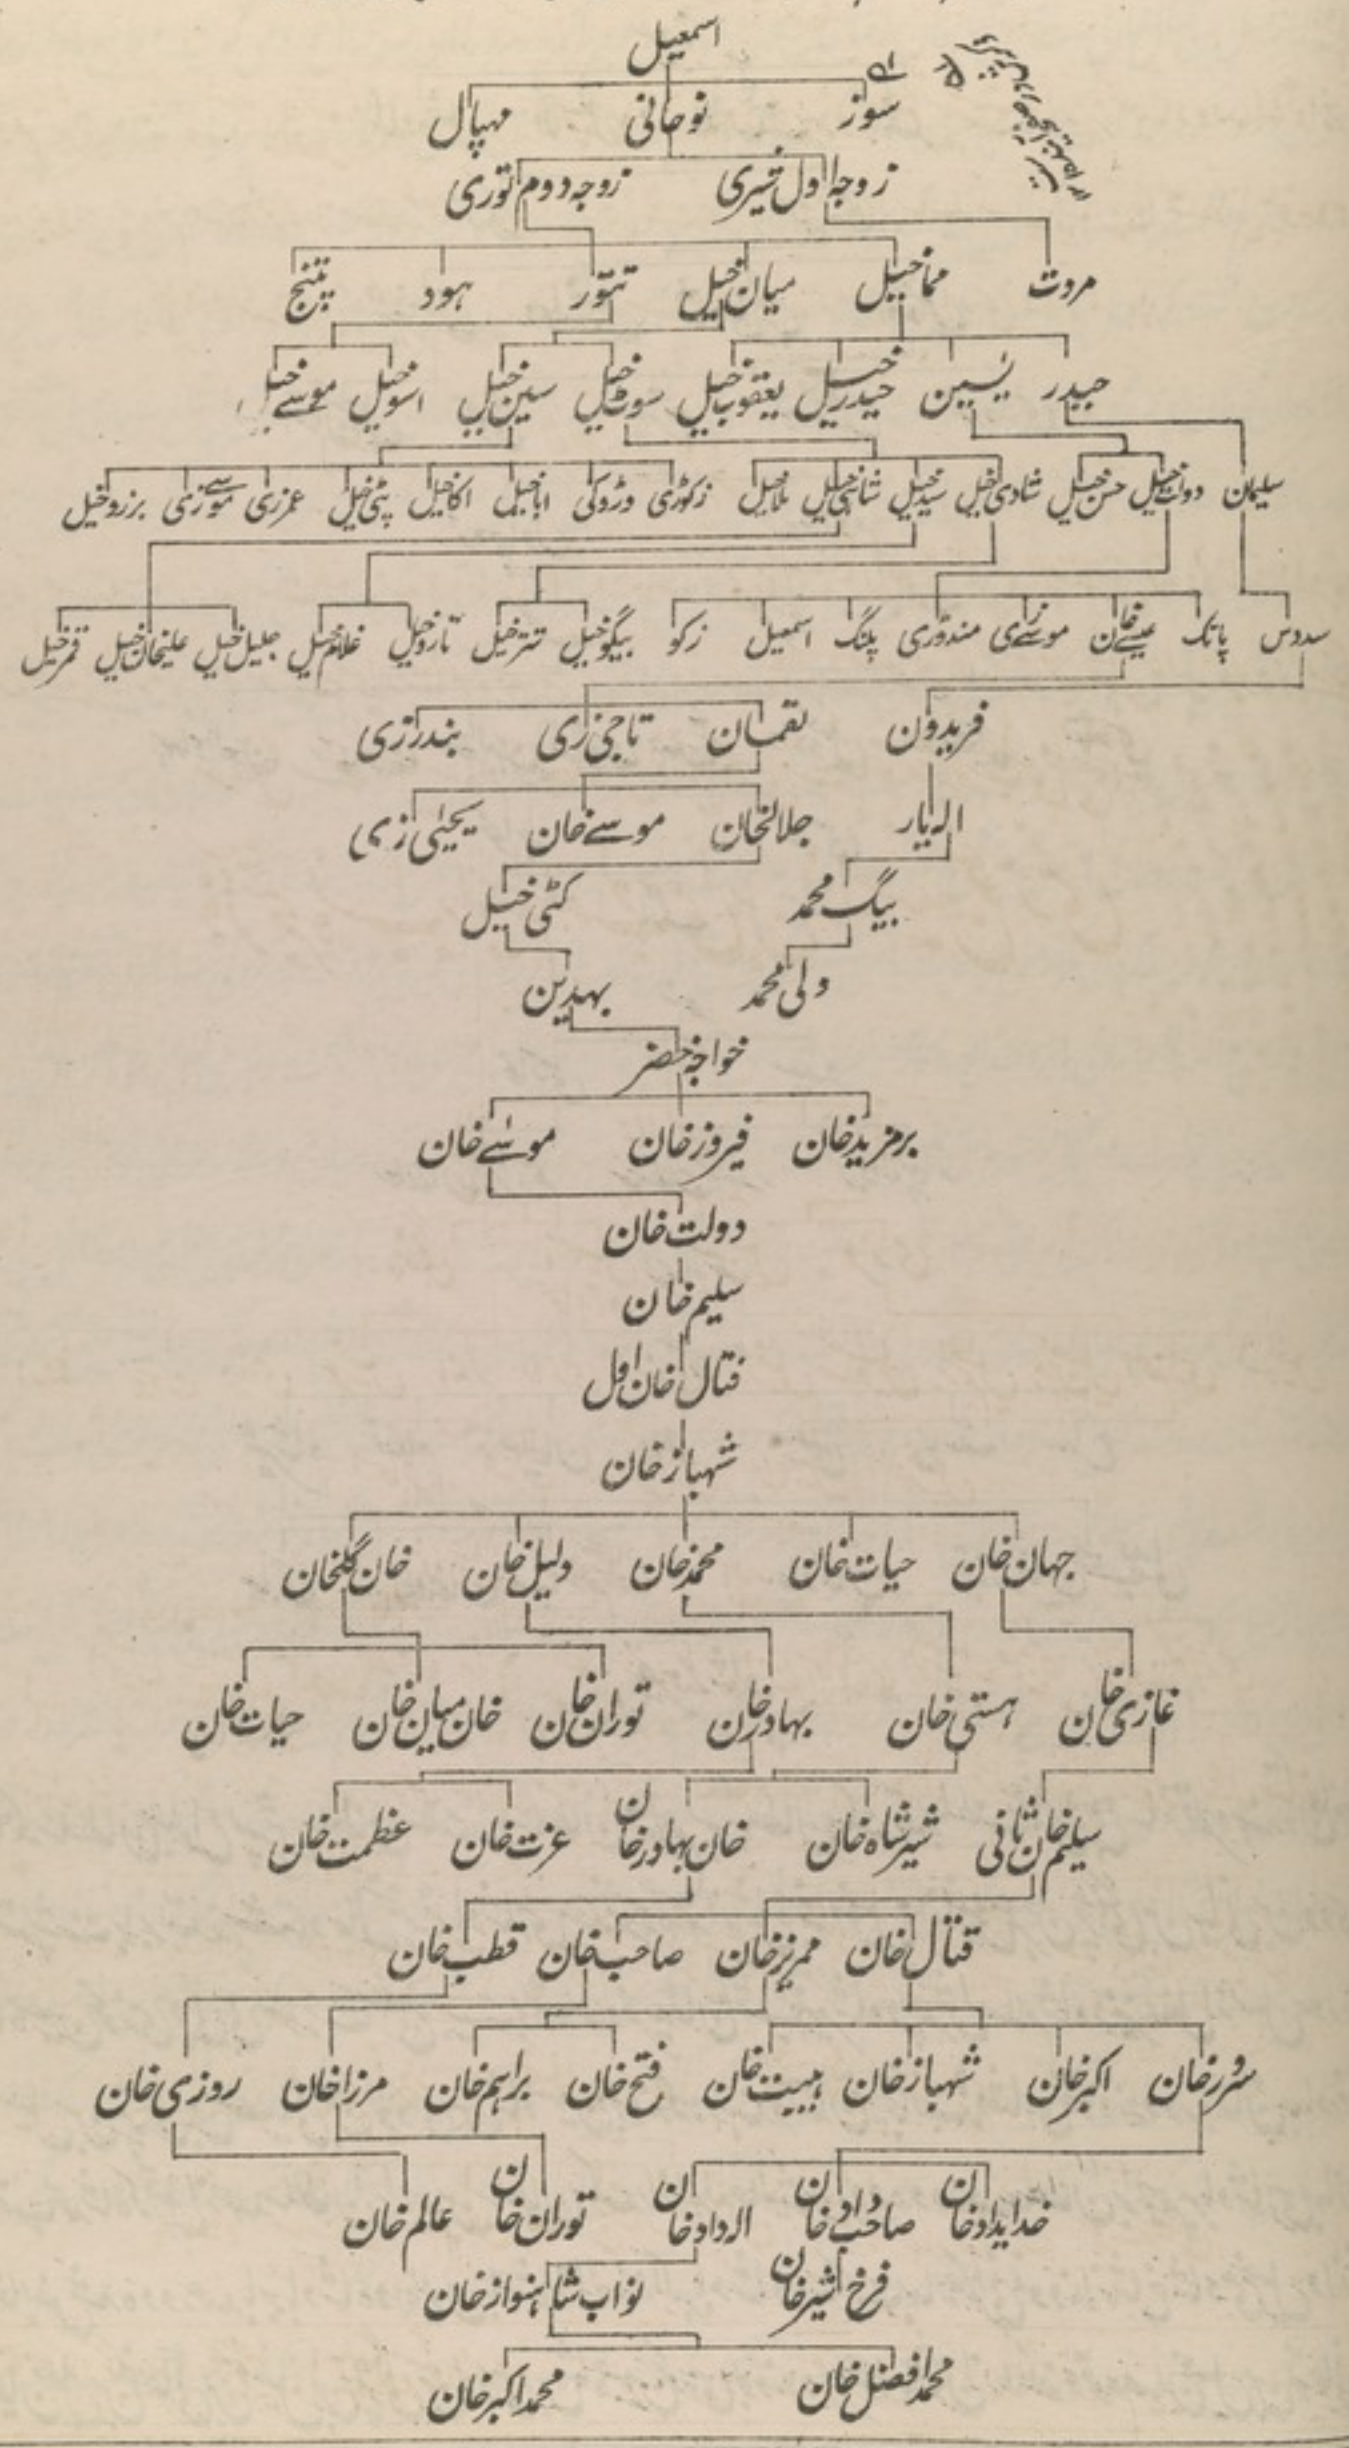 اسمعیل
سوز نوحانی مہپال
زوجہ اول قیسری زوجہ دوم توری
مروت مماخیل میان خیل تتور ہود پتنج
حیدر یٰسین حیدرخیل یعقوب خیل سوت خیل سین خیل اسوخیل موسے خیل
سلیمان دولت خیل حسن خیل شادی خیل سید خیل شاہی خیل ملاخیل زکوڑی وڑوکی اباخیل اکاخیل پنی خیل عمرزی موسے زی برزوخیل
سدوس پاتک عیسے خان موسے زی مندوزی پلنگ اسمعیل زکو بیگوخیل تترخیل تاروخیل غلام خیل جلیل خیل علیخان خیل قمرخیل
فریدون نقمان تاجی زی بندرزی
الہ یار جلالخان موسے خان یحیٰی زی
بیگ محمد کٹی خیل
ولی محمد بہدین
خواجہ خضر
برمزید خان فیروز خان موسٰے خان
دولت خان
سلیم خان
قتال خان اول
شہباز خان
جہان خان حیات خان محمد خان دلیل خان خان گلخان
غازی خان ہستی خان بہادر خان توران خان خان میان خان حیات خان
سلیم خان ثانی شیر شاہ خان خان بہادر خان عزت خان عظمت خان
قتال خان ممریز خان صاحب خان قطب خان
سرور خان اکبر خان شہباز خان ہیبت خان فتح خان براہم خان مرزا خان روزی خان
خدایداد خان صاحب داد خان الہداد خان توران خان عالم خان
فرخ شیر خان نواب شاہنواز خان
محمد افضل خان محمد اکبر خان